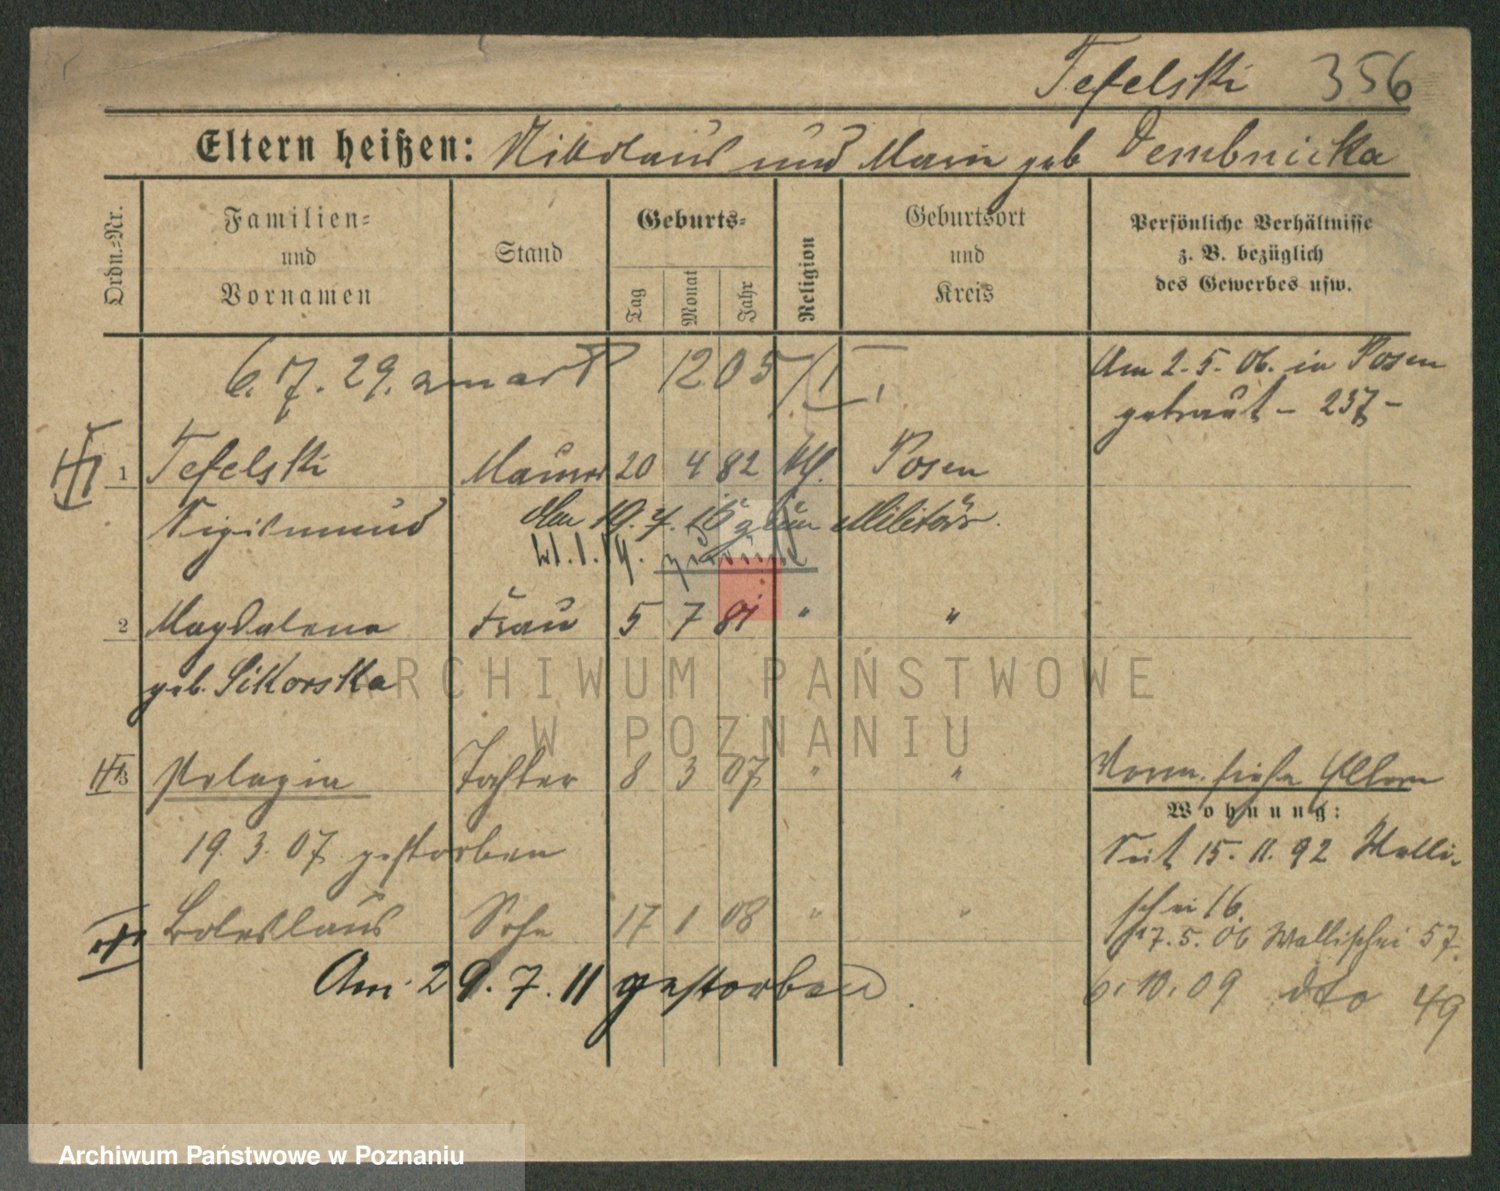 Tefelski 356
Eltern heißen: Nikolaus und Marie geb Dembnicka
Ordn.-Nr.
Familien- und Vornamen
Stand
Geburts-
Tag
Monat
Jahr
Religion
Geburtsort und Kreis
Persönliche Verhältnisse z. B. bezüglich des Gewerbes usw.
6. 7. 29. 1205/1
Am 2. 5. 06. in Posen
getraut - 237 -
1 Tefelski Maurer 20 4 82 kth. Posen
Sigismund
Am 19. 4. 15 zum Militär.
2 Magdalena Frau 5 7 81 " "
geb. Sikorska
ARCHIWUM PAŃSTWOWE
W POZNANIU
3 Pelagia Tochter 8 3 07 " "
Vorm. siehe Eltern
Wohnung:
19. 3. 07 gestorben
Seit 15. 11. 92 Walli-
schei 16.
Boleslaus Sohn 17 1 08 " "
17. 5. 06 Wallischei 57.
Am 29. 7. 11 gestorben.
6. 10. 09 dto 49
Archiwum Państwowe w Poznaniu